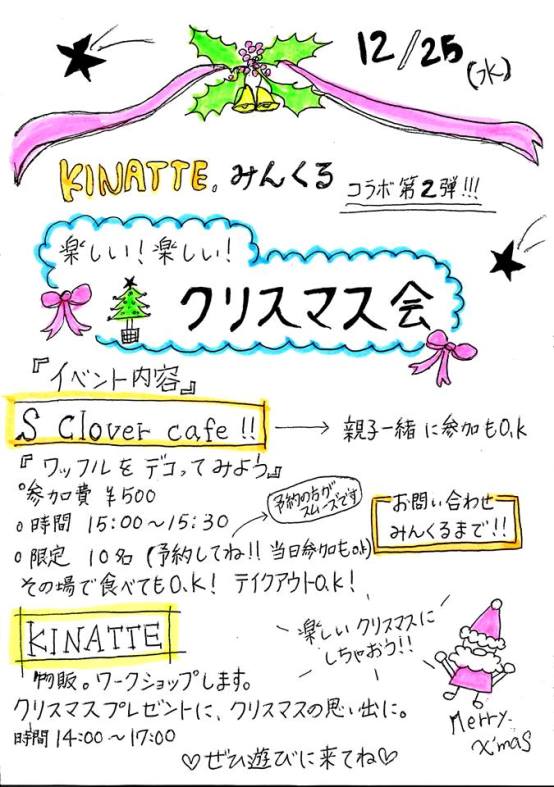 12/25
(水)
KINATTE。みんくる コラボ第2弾!!!
楽しい!楽しい!
クリスマス会
『イベント内容』
S Clover cafe !! → 親子一緒に参加もO.k
『ワッフルをデコってみよう』
○参加費 ¥500
予約の方が
スムーズです
○時間 15:00〜15:30
○限定 10名 (予約してね!! 当日参加もok)
お問い合わせ
みんくるまで!!
その場で食べてもO.K! テイクアウトO.k!
KINATTE
物販。ワークショップします。
クリスマスプレゼントに、クリスマスの思い出に。
時間14:00〜17:00
楽しいクリスマスに
しちゃおう!!
Merry.
X'mas
♡ぜひ遊びに来てね♡